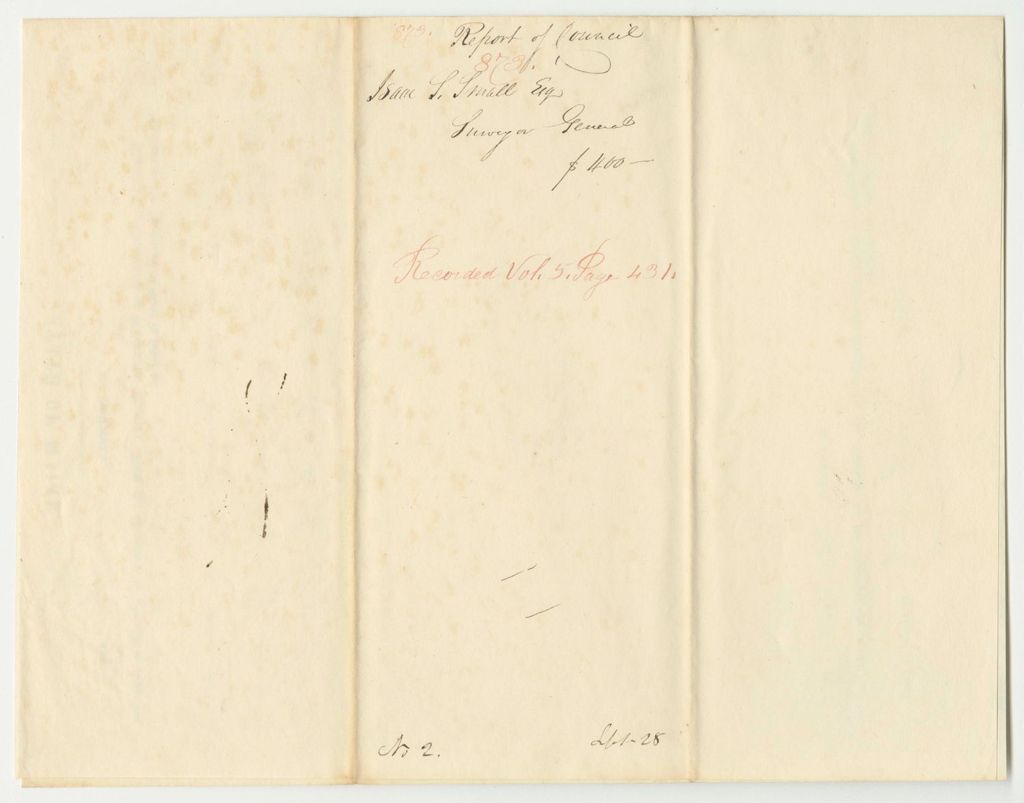 873. Report of Council
873.
Isaac S. Small Esq
Surveyor General
$ 400—
Recorded Vol. 5. Page 431.
No 2. Sept. 28